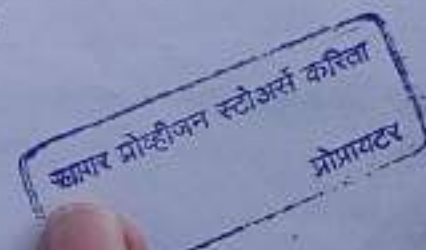 खापर प्रोव्हीजन स्टोअर्स करिता
प्रोप्रायटर